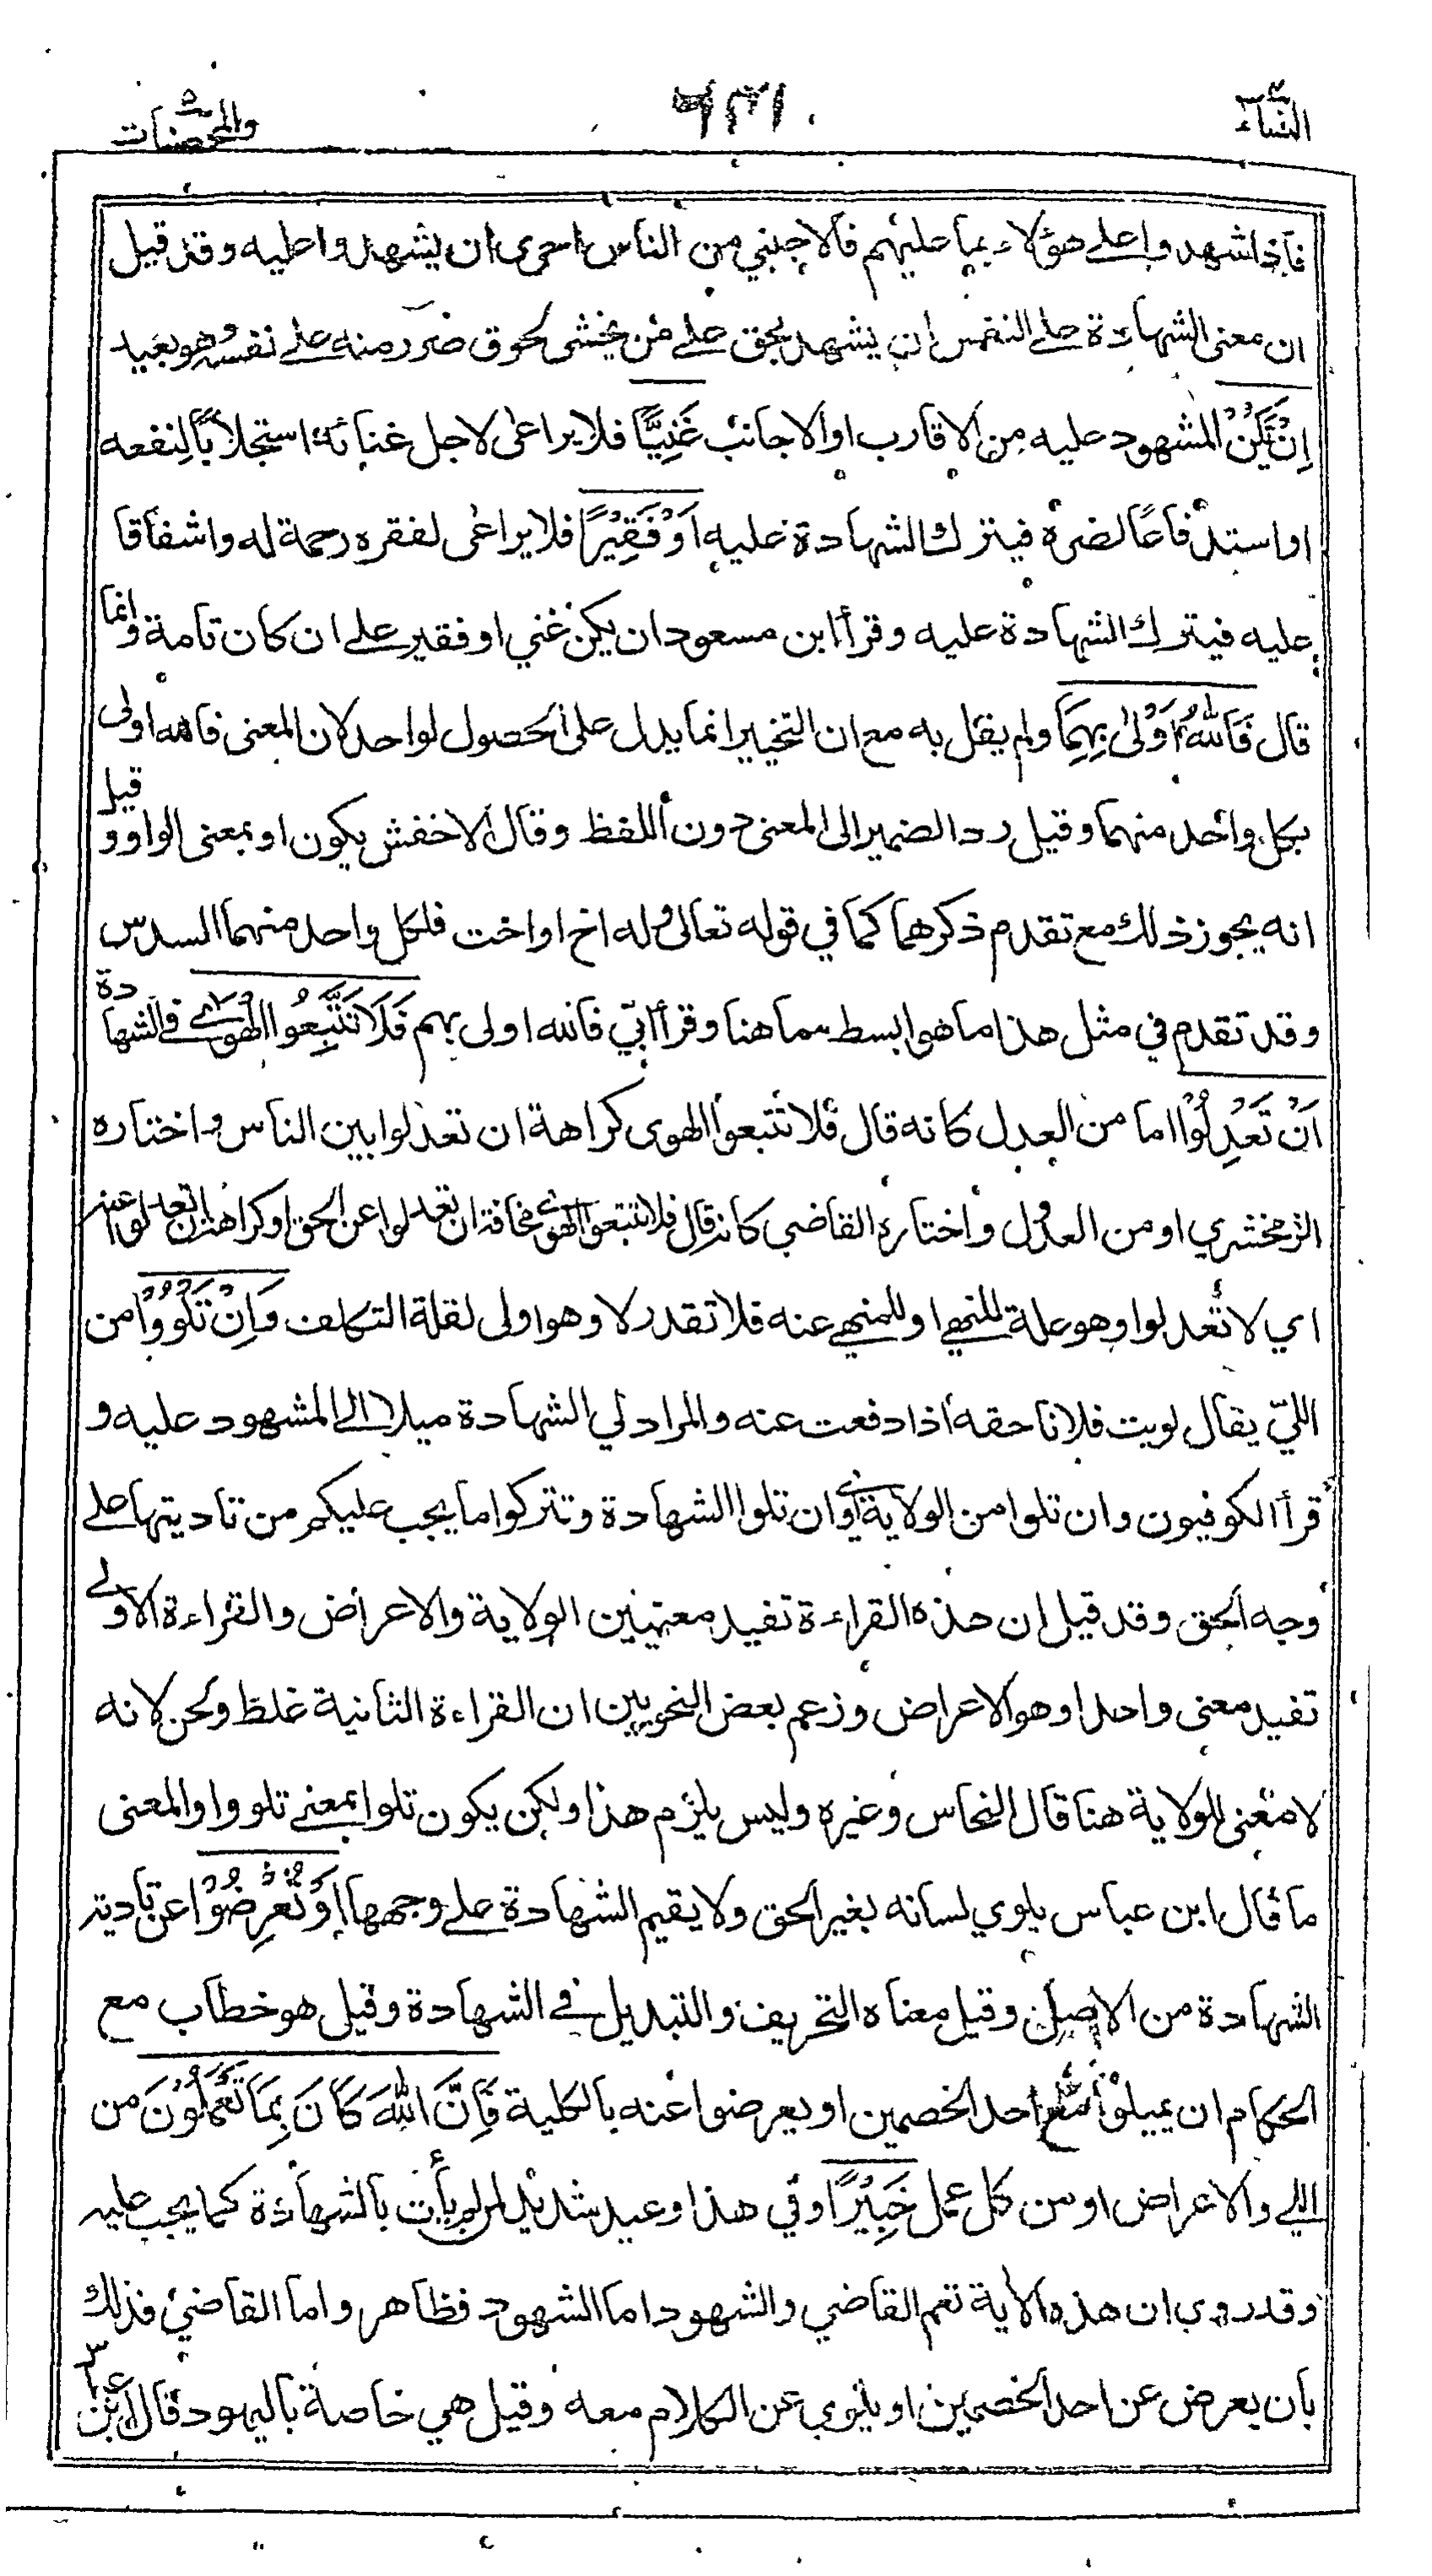 النساء
٦٣١
والمحصنات
فاذا شهدوا على هؤلاء بما عليهم فالاجنبي من الناس احرى ان يشهدوا عليه وقد قيل
ان معنى الشهادة على النفس ان يشهد بحق على من يخشى لحوق ضرر منه على نفسه وهو بعيد
اِنْ يَّكُنْ المشهود عليه من الاقارب او الاجانب غَنِيًّا فلا يراعى لاجل غنائه استجلابا لنفعه
او استدفاعا لضره فيترك الشهادة عليه اَوْ فَقِيْرًا فلا يراعى لفقره رحمة له واشفاقا
عليه فيترك الشهادة عليه وقرأ ابن مسعود ان يكن غني او فقير على ان كان تامة وانما
قال فَاللّٰهُ اَوْلٰى بِهِمَا ولم يقل به مع ان التخيير انما يدل على الحصول لواحد لان المعنى فالله اولى
بكل واحد منهما وقيل رد الضمير الى المعنى دون اللفظ وقال الاخفش يكون او بمعنى الواو وقيل
انه يجوز ذلك مع تقدم ذكرهما كما في قوله تعالى وله اخ او اخت فلكل واحد منهما السدس
وقد تقدم في مثل هذا ما هو ابسط مما هنا وقرأ ابيّ فالله اولى بهم فَلَا تَتَّبِعُوا الْهَوٰٓى في الشهادة
اَنْ تَعْدِلُوْا اما من العدل كانه قال فلا تتبعوا الهوى كراهة ان تعدلوا بين الناس واختاره
الزمخشري او من العدول واختاره القاضي كانه قال فلا تتبعوا الهوى مخافة ان تعدلوا عن الحق او كراهة ان تعدلوا عنه
اي لا تعدلوا وهو علة للنهي او للمنهي عنه فلا تقدر لا وهو اولى لقلة التكلف وَاِنْ تَلْوُوْا من
الليّ يقال لويت فلانا حقه اذا دفعت عنه والمراد لي الشهادة ميلا الى المشهود عليه و
قرأ الكوفيون وان تلوا من الولاية اي وان تلوا الشهادة وتتركوا ما يجب عليكم من تاديتها على
وجه الحق وقد قيل ان هذه القراءة تفيد معنيين الولاية والاعراض والقراءة الاولى
تفيد معنى واحدا وهو الاعراض وزعم بعض النحويين ان القراءة الثانية غلط ولحن لانه
لا معنى للولاية هنا قال النحاس وغيره وليس يلزم هذا ولكن يكون تلوا بمعنى تلووا والمعنى
ما قال ابن عباس يلوي لسانه بغير الحق ولا يقيم الشهادة على وجهها اَوْ تُعْرِضُوْا عن تادية
الشهادة من الاصل وقيل معناه التحريف والتبديل في الشهادة وقيل هو خطاب مع
الحكام ان يميلوا مع احد الخصمين او يعرضوا عنه بالكلية فَاِنَّ اللّٰهَ كَانَ بِمَا تَعْمَلُوْنَ من
اللي والاعراض او من كل عمل خَبِيْرًا وفي هذا وعيد شديد لمن لم يأت بالشهادة كما يجب عليه
وقد روي ان هذه الآية تعم القاضي والشهود اما الشهود فظاهر واما القاضي فذلك
بان يعرض عن احد الخصمين او يلوي عن الكلام معه وقيل هي خاصة باليهود قال ابن عباس